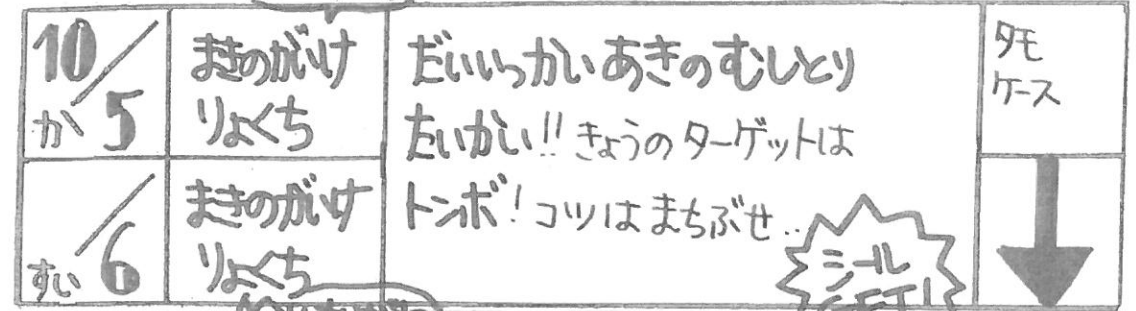 10/5
か
まきのがいけ
りょくち
だいいっかいあきのむしとり
たいかい!!きょうのターゲットは
トンボ!コツはまちぶせ..
タモ
ケース
/6
すい
まきのがいけ
りょくち
シール
GET!